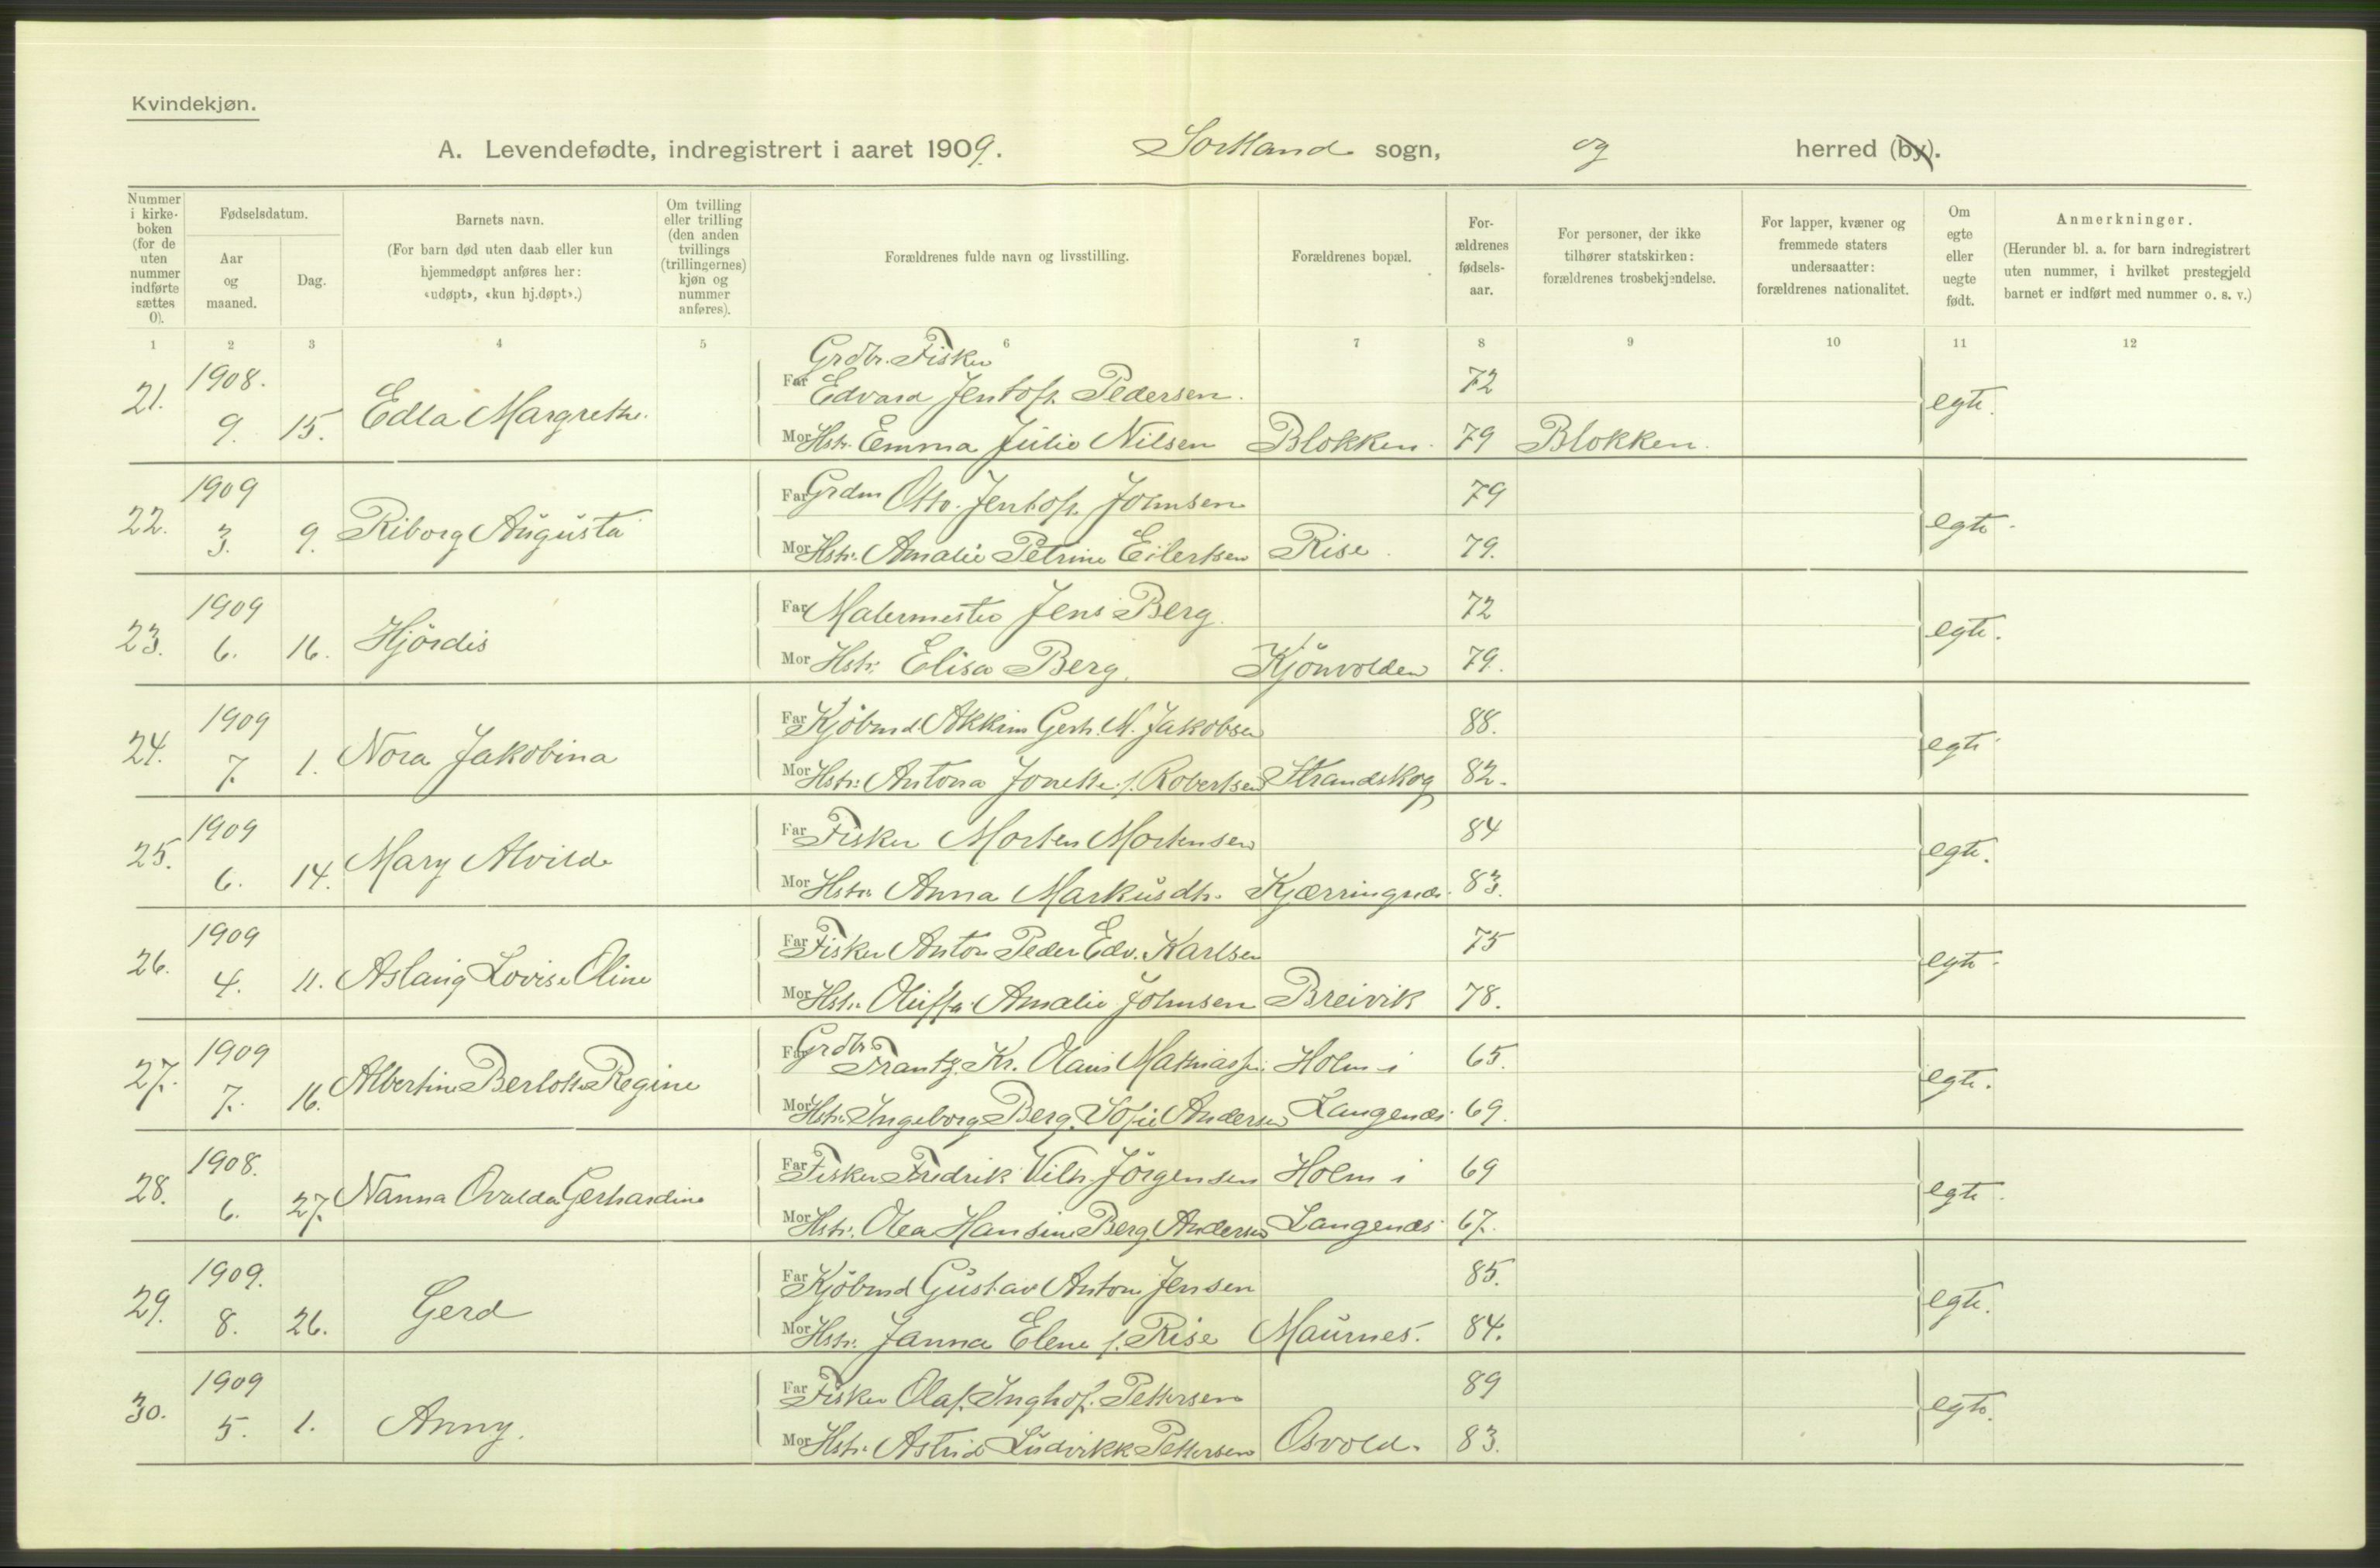 Kvindekjøn.
A. Levendefødte, indregistrert i aaret 1909. Sortland sogn, og herred (by).
Nummer i kirke-boken (for de uten nummer indførte sættes 0).
Fødselsdatum.
Aar og maaned.
Dag.
Barnets navn.
(For barn død uten daab eller kun hjemmedøpt anføres her: «udøpt», «kun hj.døpt».)
Om tvilling eller trilling (den anden tvillings (trillingernes) kjøn og nummer anføres).
Forældrenes fulde navn og livsstilling.
Forældrenes bopæl.
For-ældrenes fødsels-aar.
For personer, der ikke tilhører statskirken: forældrenes trosbekjendelse.
For lapper, kvæner og fremmede staters undersaatter: forældrenes nationalitet.
Om egte eller uegte født.
Anmerkninger.
(Herunder bl. a. for barn indregistrert uten nummer, i hvilket prestegjeld barnet er indført med nummer o. s. v.)
1 2 3 4 5 6 7 8 9 10 11 12
Grdbr. Fisker
21. 1908. 9. 15. Edla Margrethe. Far Edvard Jentoft Pedersen. 72 egte.
Mor Hstr. Emma Julie Nilsen Blokken. 79 Blokken.
22. 1909 3. 9. Riborg Augusta Far Grdm Otto Jentoft Johnsen 79 egte.
Mor Hstr. Amalie Petrine Eilertsen Rise. 79.
23. 1909 6. 16. Hjördis Far Malermester Jens Berg. 72 egte.
Mor Hstr. Elisa Berg. Kjönvolden 79.
24. 1909 7. 1. Nora Jakobina Far Kjöbmd Akkim Gerh. M. Jakobsen 88. egte
Mor Hstr. Antona Jonette f. Robertsen Strandskog 82.
25. 1909 6. 14. Mary Alvilde Far Fisker Morten Mortensen 84 egte.
Mor Hstr. Anna Markusdtr. Kjærringnes. 83.
26. 1909 4. 11. Aslaug Lovise Oline Far Fisker Anton Peder Edv. Karlsen 75 egte.
Mor Hstr. Oluffa Amalie Johnsen Breivik 78.
27. 1909 7. 16. Albertine Berlotte Regine Far Grdbr. Frantz Kr. Olaus Mathiassen Holm i 65. egte.
Mor Hstr. Ingeborg Berg. Sofie Andersen Langenes. 69.
28. 1908. 6. 27. Nanna Ovalda Gerhardine Far Fisker Fredrik Vilh. Jörgensen Holm i 69 egte.
Mor Hstr. Olea Hansine Berg. Andersen Langenes 67.
29. 1909. 8. 26. Gerd Far Kjöbmd Gustav Anton Jensen 85. egte.
Mor Hstr. Janna Elene f. Rise Maurnes. 84.
30. 1909 5. 1. Anny. Far Fisker Olaf Inghof. Pettersen 89 egte.
Mor Hstr. Astrid Ludvikke Pettersen Osvold. 83.